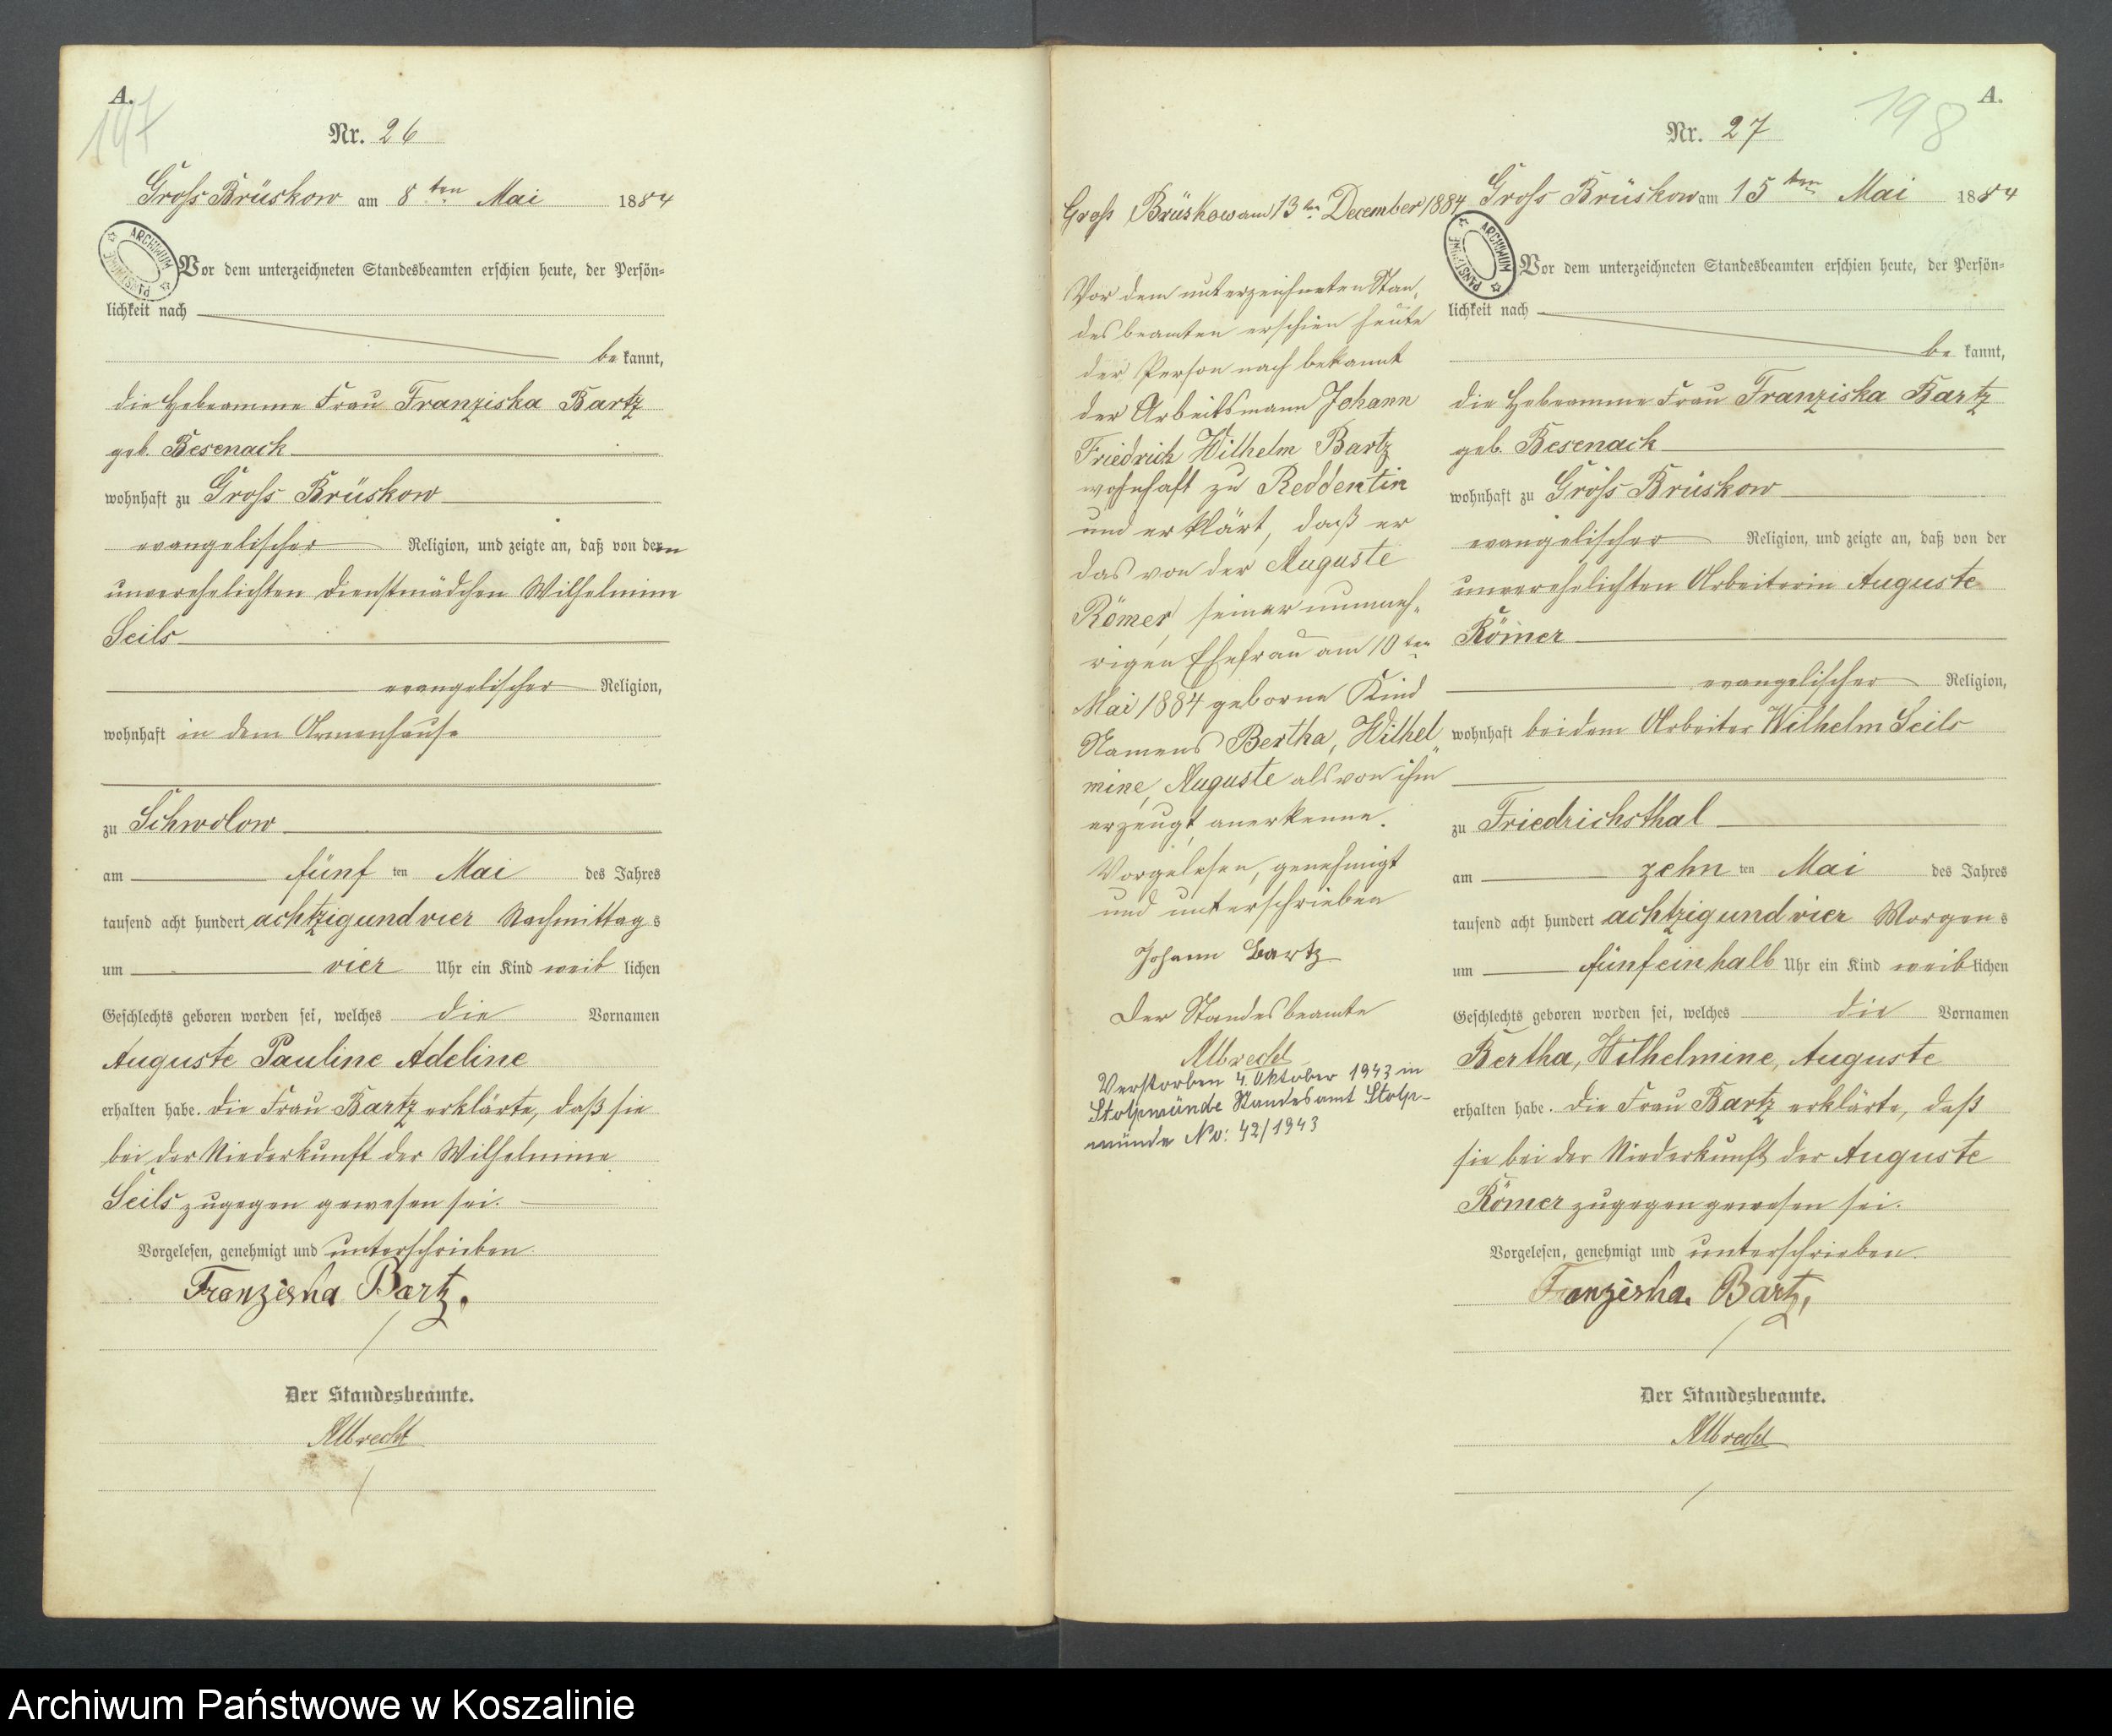 A.
147
Nr. 26
Gross Brüskow am 8ten Mai 1884
ARCHIWUM PAŃSTWOWE
Vor dem unterzeichneten Standesbeamten erschien heute, der Persön=
lichkeit nach
be kannt,
die Hebeamme Frau Franziska Bartz
geb. Besenack
wohnhaft zu Gross Brüskow
evangelischer Religion, und zeigte an, daß von dem
unverehelichten Dienstmädchen Wilhelmine
Seils
evangelischer Religion,
wohnhaft in dem Armenhause
zu Schwolow
am fünf ten Mai des Jahres
tausend acht hundert achtzigundvier Nachmittag s
um vier Uhr ein Kind weib lichen
Geschlechts geboren worden sei, welches die Vornamen
Auguste Pauline Adeline
erhalten habe. Die Frau Bartz erklärte, daß sie
bei der Niederkunft der Wilhelmine
Seils zugegen gewesen sei.
Vorgelesen, genehmigt und unterschrieben
Franziska Bartz.
Der Standesbeamte.
Albrecht
Gross Brüskow am 13ten December 1884
Vor dem unterzeichneten Stan,
desbeamten erschien heute
der Person nach bekannt
der Arbeitsmann Johann
Friedrich Wilhelm Bartz
wohnhaft zu Reddentin
und erklärt, daß er
das von der Auguste
Römer seiner nunmeh,
rigen Ehefrau am 10ten
Mai 1884 geborne Kind
Namens Bertha, Wilhel„
mine, Auguste als von ihm
erzeugt anerkenne.
Vorgelesen, genehmigt
und unterschrieben
Johann Bartz
Der Standesbeamte
Albrecht
Verstorben 4. Oktober 1943 in
Stolpmünde Standesamt Stolp-
münde No: 42/1943
A.
198
Nr. 27
Gross Brüskow am 15ten Mai 1884
ARCHIWUM PAŃSTWOWE
Vor dem unterzeichneten Standesbeamten erschien heute, der Persön=
lichkeit nach
be kannt,
die Hebeamme Frau Franziska Bartz
geb. Besenack
wohnhaft zu Gross Brüskow
evangelischer Religion, und zeigte an, daß von der
unverehelichten Arbeiterin Auguste
Römer
evangelischer Religion,
wohnhaft bei dem Arbeiter Wilhelm Seils
zu Friedrichsthal
am zehn ten Mai des Jahres
tausend acht hundert achtzigundvier Morgen s
um fünfeinhalb Uhr ein Kind weib lichen
Geschlechts geboren worden sei, welches die Vornamen
Bertha, Wilhelmine, Auguste
erhalten habe. Die Frau Bartz erklärte, daß
sie bei der Niederkunft der Auguste
Römer zugegen gewesen sei.
Vorgelesen, genehmigt und unterschrieben.
Franziska Bartz,
Der Standesbeamte.
Albrecht
Archiwum Państwowe w Koszalinie